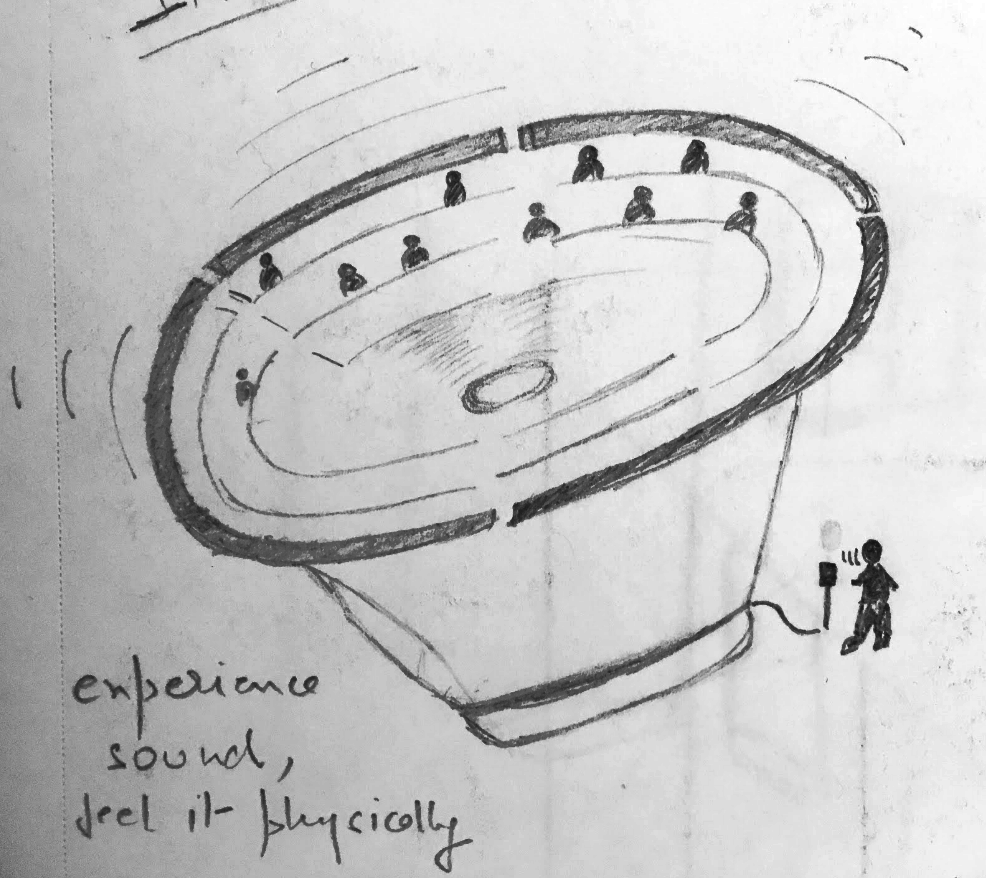 experience
sound,
feel it physically